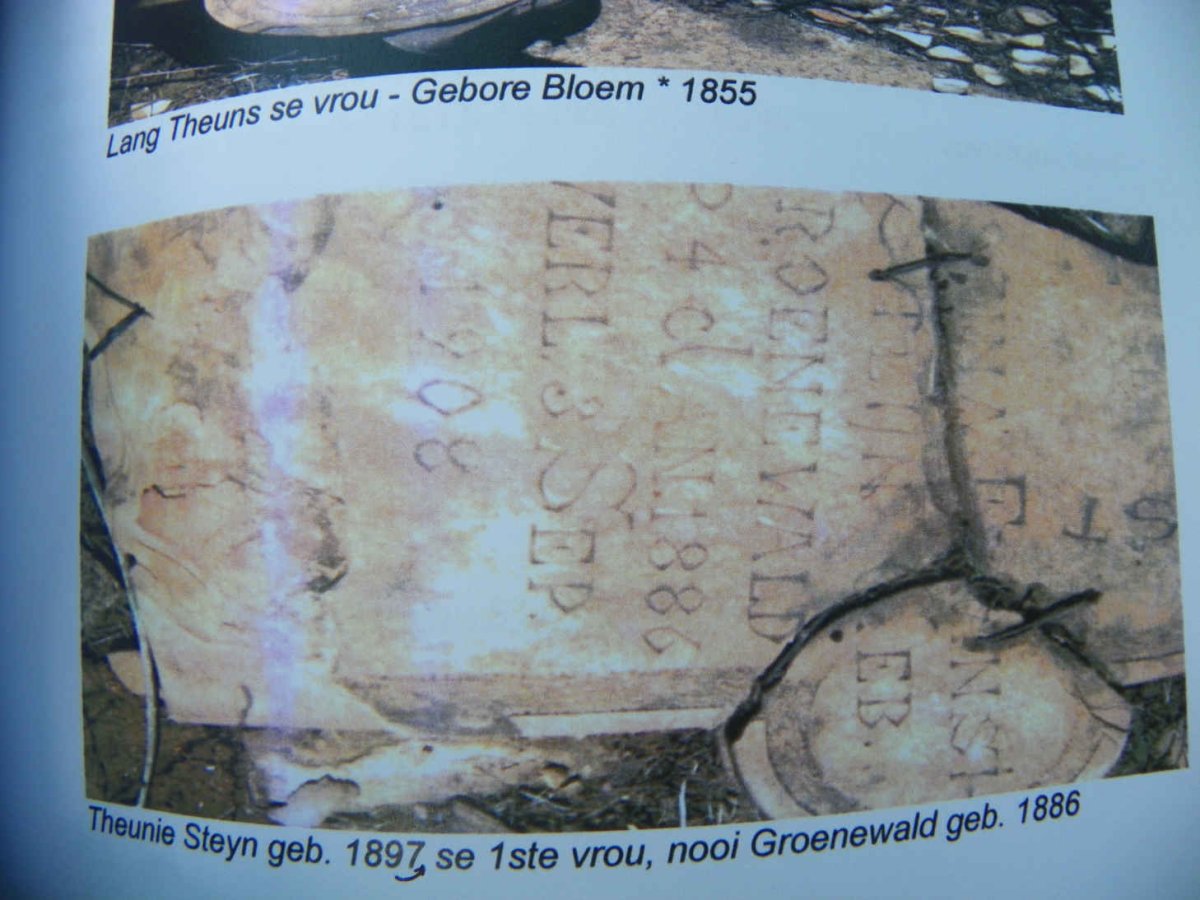 Lang Theuns se vrou - Gebore Bloem * 1855
ST
E
TEIJN
ROENEWALD
1886
VERL. 3 SEP.
1908
NNSI
EB.
Theunie Steyn geb. 1897, se 1ste vrou, nooi Groenewald geb. 1886